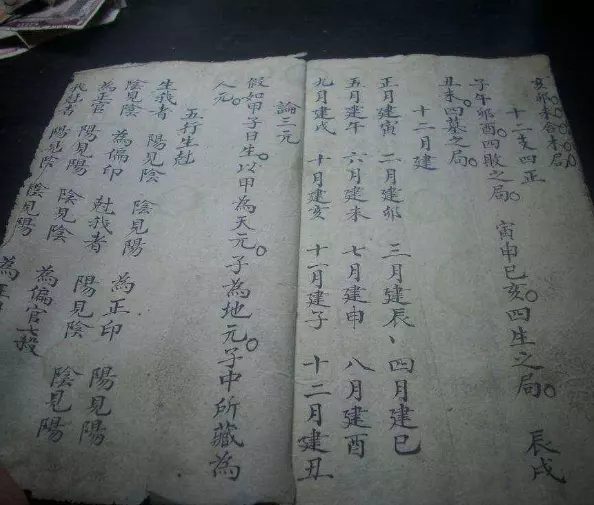 亥卯未合木局
十二支四正
子午卯酉。四敗之局。 寅申巳亥。四生之局。 辰戌
丑未。四墓之局。
十二月建
正月建寅 二月建卯 三月建辰、四月建巳
五月建午 六月建未 七月建申 八月建酉
九月建戌 十月建亥 十一月建子 十二月建丑
論三元
假如甲子日生。以甲為天元。子為地元。子中所藏為
人元。
五行生尅
生我者 陽見陰 陰見陽 為正印 陽見陽
陰見陰 為偏印 尅我者 陽見陰 陰見陽
為正官 陽見陽 陰見陰 為偏官七殺
我尅者 陽見陰 陰見陽 為正